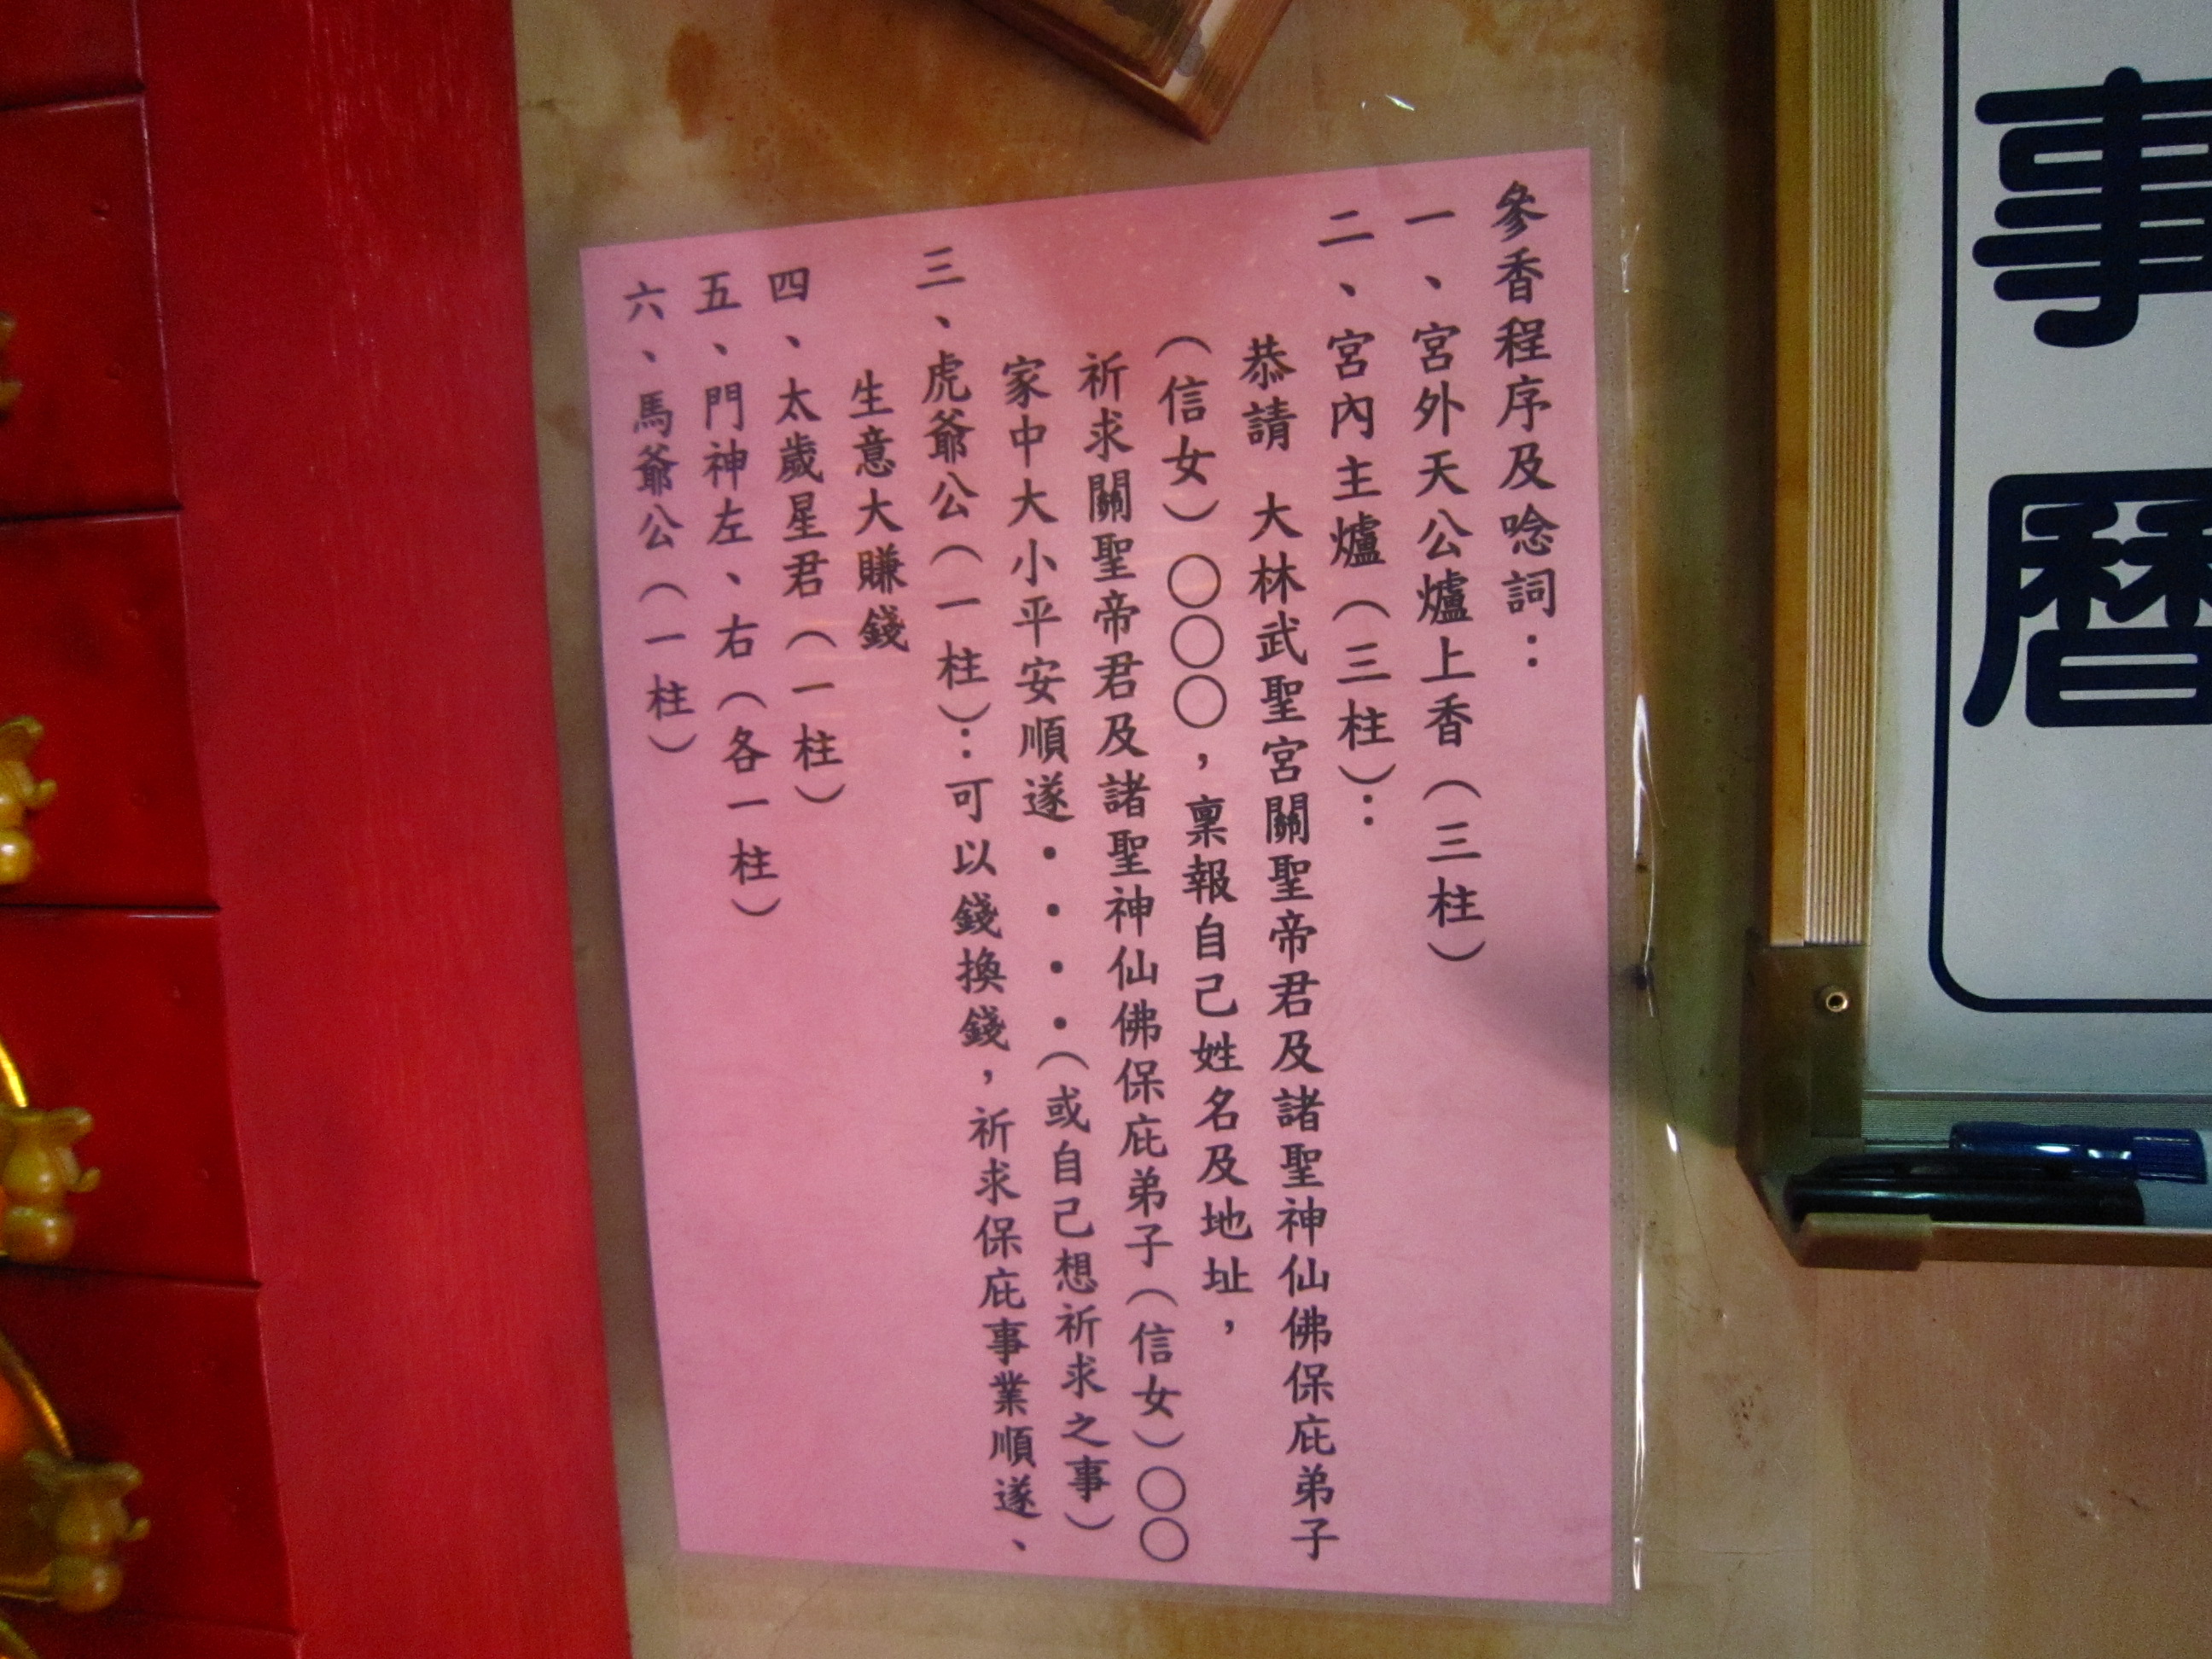 參香程序及唸詞：
一、宮外天公爐上香（三柱）
二、宮內主爐（三柱）：
恭請　大林武聖宮關聖帝君及諸聖神仙佛保庇弟子
（信女）○○○，稟報自己姓名及地址，
祈求關聖帝君及諸聖神仙佛保庇弟子（信女）○○
家中大小平安順遂・・・・（或自己想祈求之事）
三、虎爺公（一柱）：可以錢換錢，祈求保庇事業順遂、
生意大賺錢
四、太歲星君（一柱）
五、門神左、右（各一柱）
六、馬爺公（一柱）
事曆